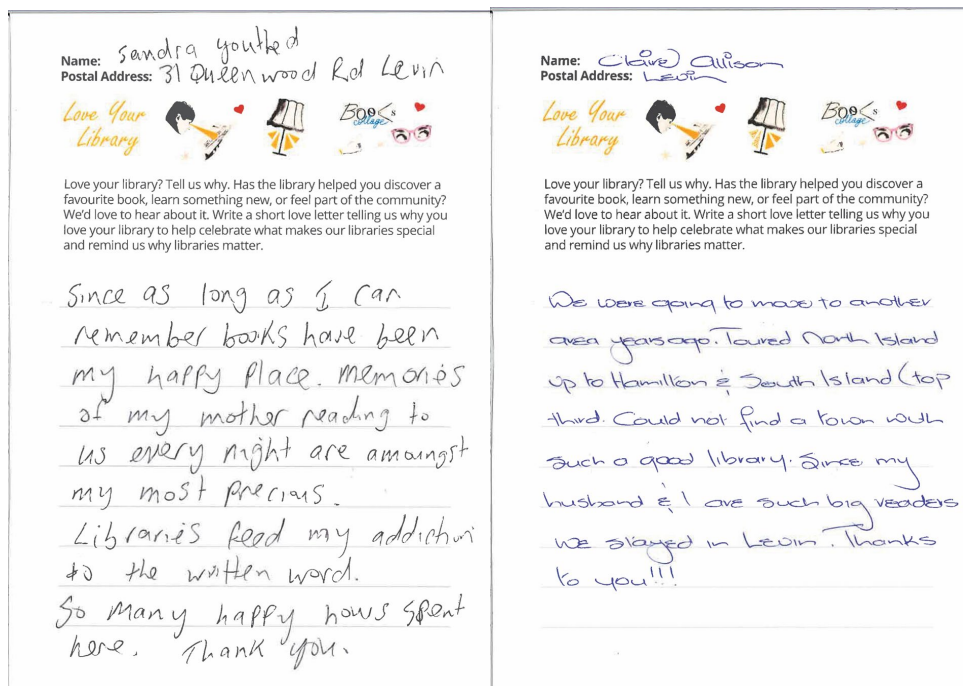 Name: Sandra Youthed
Postal Address: 31 Queenwood Rd Levin
Love Your
Library
BOOKs
Collage
Love your library? Tell us why. Has the library helped you discover a
favourite book, learn something new, or feel part of the community?
We'd love to hear about it. Write a short love letter telling us why you
love your library to help celebrate what makes our libraries special
and remind us why libraries matter.
Since as long as I can
remember books have been
my happy place. Memories
of my mother reading to
us every night are amoungst
my most precious.
Libraries feed my addiction
to the written word.
So many happy hours spent
here. Thank you.
Name: Claire Allison
Postal Address: Levin
Love Your
Library
BOOKs
Collage
Love your library? Tell us why. Has the library helped you discover a
favourite book, learn something new, or feel part of the community?
We'd love to hear about it. Write a short love letter telling us why you
love your library to help celebrate what makes our libraries special
and remind us why libraries matter.
We were going to move to another
area years ago. Toured North Island
up to Hamilton & South Island (top
third. Could not find a town with
such a good library. Since my
husband & I are such big readers
we stayed in Levin. Thanks
to you!!!